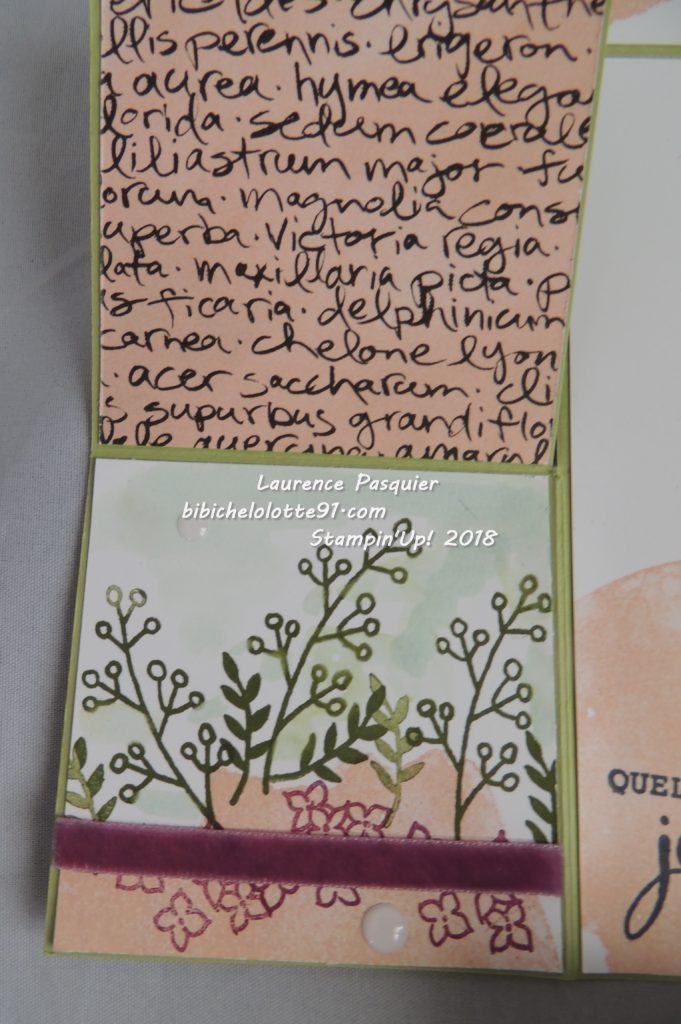 llis perennis. erigeron.
aurea. hymea elega
lorida. sedum coerale
liliastrum major fu
orum. magnolia cons
uperba. Victoria regia.
lata. maxillaria picta. p
s ficaria. delphinicum
carnea. chelone lyon
. acer saccharum. cli
s supurbus grandiflo
quercina. amaryl
Laurence Pasquier
bibichelolotte91.com
Stampin'Up! 2018
QUEL
jo